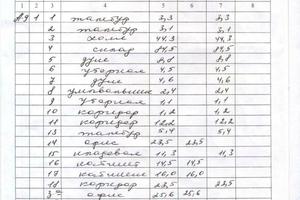 1 2 3 4 5 6 7 8
А91 1 1 тамбур 3,3 3,3
2 тамбур 3,1 3,1
3 холл 44,3 44,3
4 склад 84,5 84,5
5 душ
6 уборная 4,5 4,5
7 душ 4,6 4,6
8 умывальник 2,4 2,4
9 уборная 1,1 1,1
10 коридор 1,2 1,2
11 коридор 12,2 12,2
13 тамбур 5,4 5,4
14 офис 23,5 23,5
15 кладовая 11,3 11,3
16 кабинет 14,5 14,5
17 кабинет 16,0 16,0
18 коридор 23,5 23,5
офис 25,6 25,6